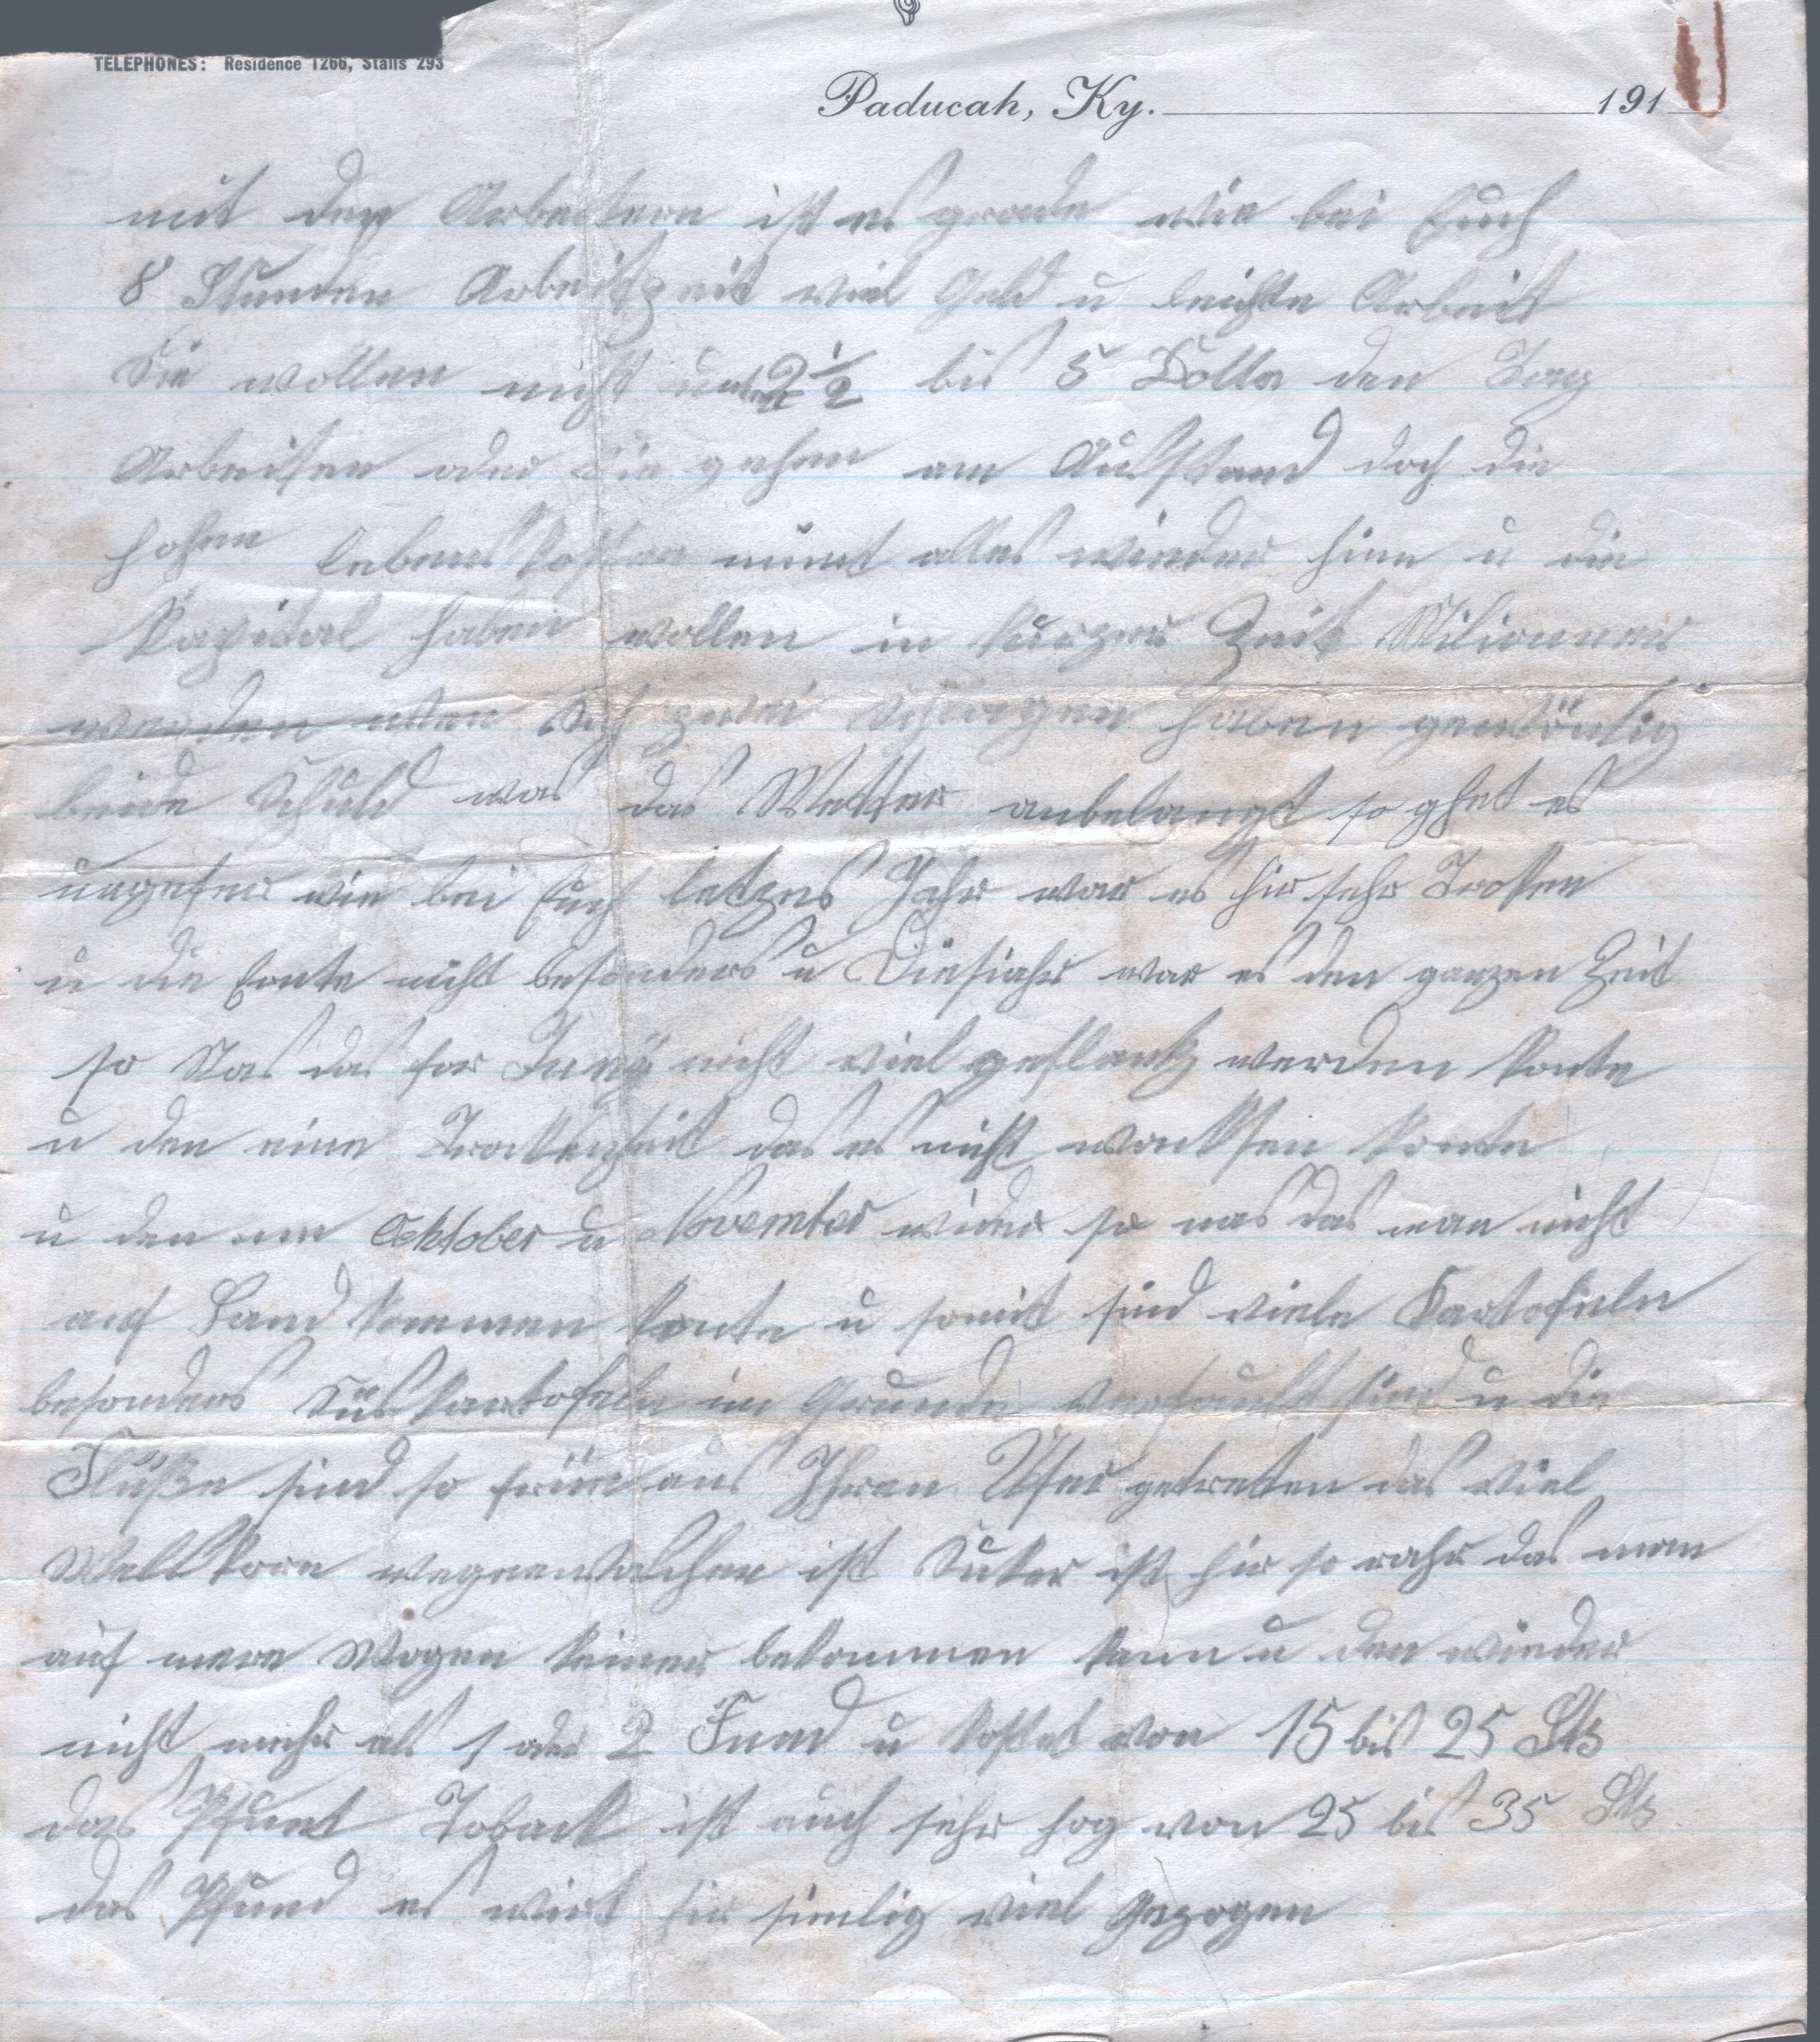 TELEPHONES: Residence 1266, Stalls 293
Paducah, Ky. 191
mit den Arbeitern ist es grade wie bei Euch
8 Stunden Arbeitzeit viel Geld u leichte Arbeit
Sie wollen nicht 2 1/2 bis 5 Dolla den Tag
Arbeiten oder Sie gehen am Aufstand doch die
hohen lebenskosten nimt alles wieder hinn u die
Kapidal haben wollen in kurzer Zeit Milioneer
werden wen sich zwei schlagen haben gewönlig
beide Schuld was das Wetter anbelangt so ghet es
ungefer wie bei Euch letzes Jahr war es hir sehr Troken
u die Ernte nicht besonders u Diesjahr war es den ganzen Zeit
so Nas das for Juny nicht viel geflantz werden konte
u den eine Trockenheit das es nicht wacksen konte
u den im Ocktober u November wieder so nas das man nicht
auf Land kommen konte u somit sind viele Kartofeln
besonders Süskartofeln im Grunde verfault sind u die
Flüße sind so früe aus Ihren Ufer getretten das viel
Wellkorn ist Suker ist hir so rahr das man
auf mere Wogen keiner bekommen kann u den wieder
nicht mehr als 1 oder 2 Fund u kostet von 15 bis 25 Sts
das Pfunt Toback ist auch sehr hog von 25 bis 35 Sts
das Pfund es wirt hir simlig viel Gezogen